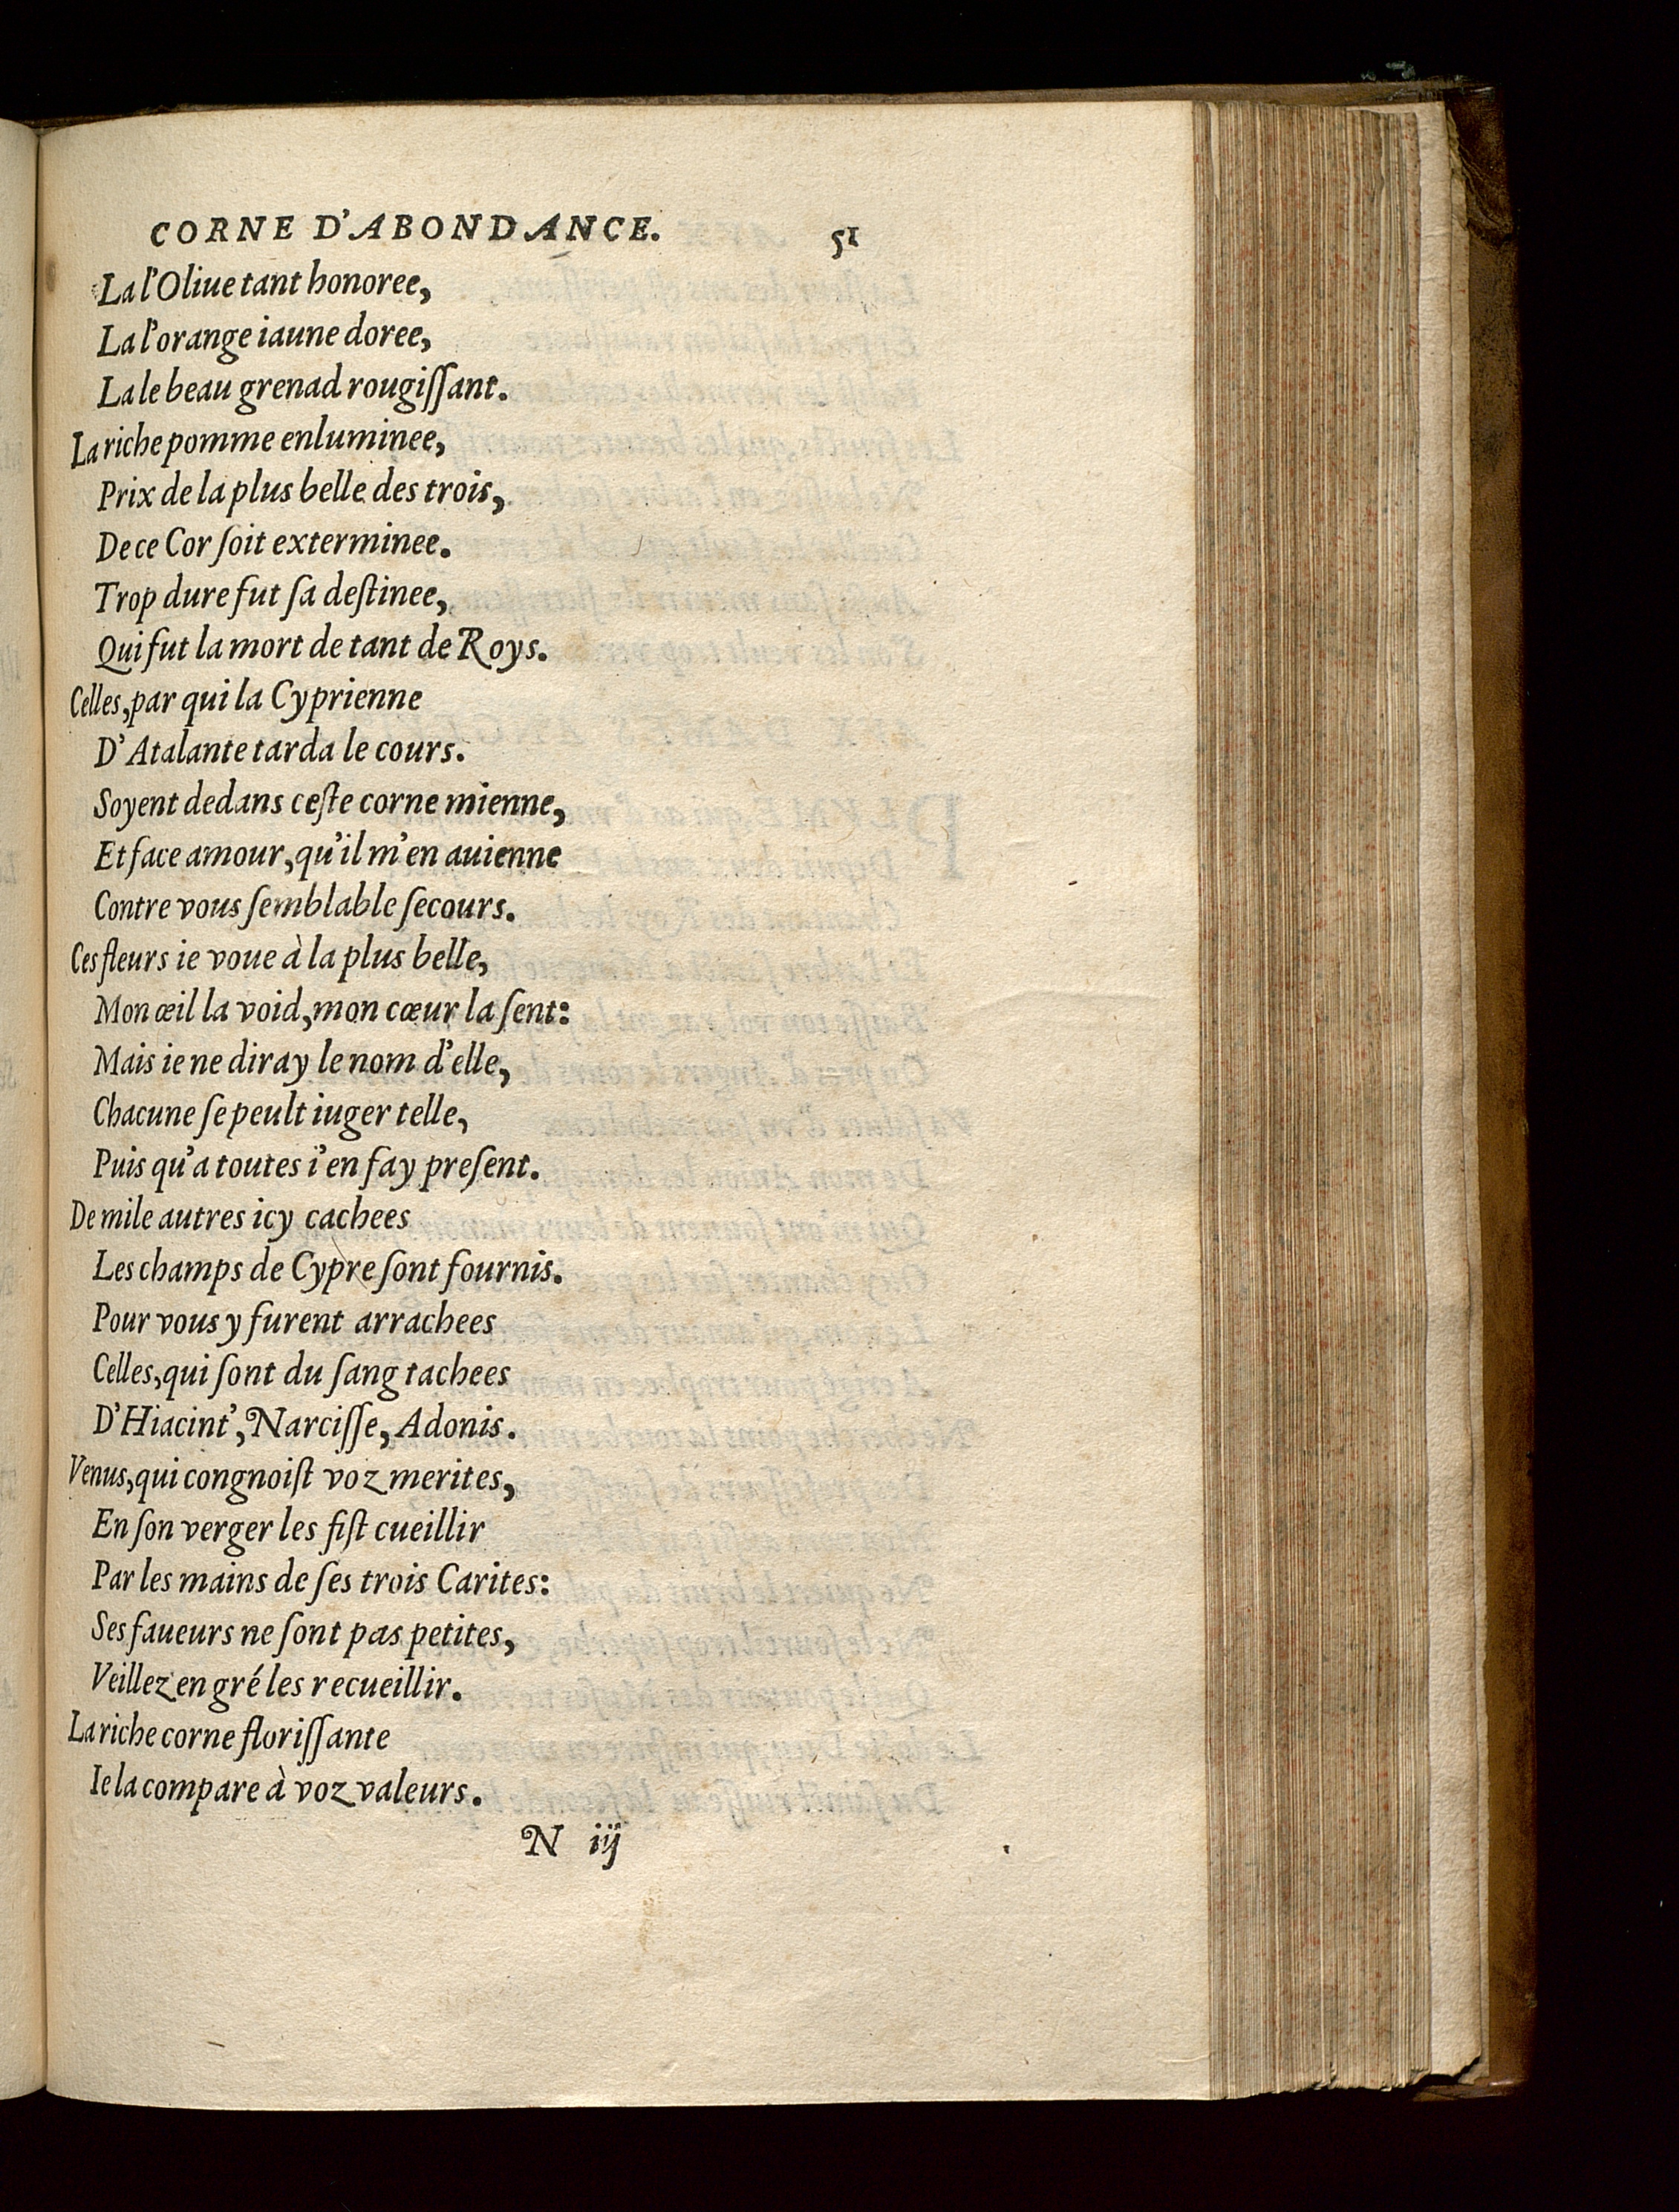 CORNE D'ABONDANCE. 51
La l'Oliue tant honoree,
La l'orange iaune doree,
La le beau grenad rougiſſant.
La riche pomme enluminee,
Prix de la plus belle des trois,
De ce Cor ſoit exterminee.
Trop dure fut ſa deſtinee,
Qui fut la mort de tant de Roys.
Celles, par qui la Cyprienne
D'Atalante tarda le cours.
Soyent dedans ceſte corne mienne,
Et face amour, qu'il m'en auienne
Contre vous ſemblable ſecours.
Ces fleurs ie voue à la plus belle,
Mon œil la void, mon cœur la ſent:
Mais ie ne diray le nom d'elle,
Chacune ſe peult iuger telle,
Puis qu'a toutes i'en fay preſent.
De mile autres icy cachees
Les champs de Cypre ſont fournis.
Pour vous y furent arrachees
Celles, qui ſont du ſang tachees
D'Hiacint', Narciſſe, Adonis.
Venus, qui congnoiſt voz merites,
En ſon verger les fiſt cueillir
Par les mains de ſes trois Carites:
Ses faueurs ne ſont pas petites,
Veillez en gré les recueillir.
La riche corne floriſſante
Ie la compare à voz valeurs.
N iij